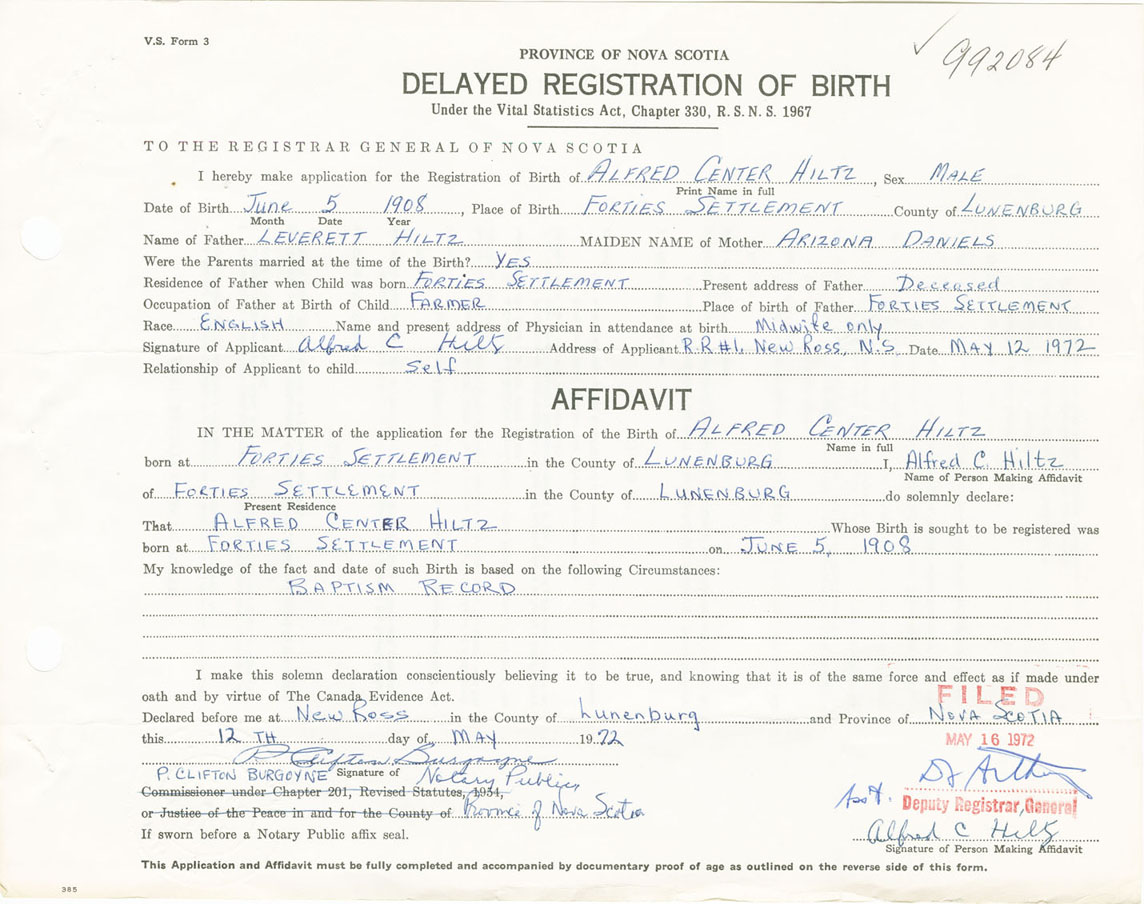 V.S. Form 3
992084
PROVINCE OF NOVA SCOTIA
DELAYED REGISTRATION OF BIRTH
Under the Vital Statistics Act, Chapter 330, R. S. N. S. 1967
TO THE REGISTRAR GENERAL OF NOVA SCOTIA
I hereby make application for the Registration of Birth of ALFRED CENTER HILTZ, Sex MALE
Print Name in full
Date of Birth June 5 1908, Place of Birth FORTIES SETTLEMENT County of LUNENBURG
Month Date Year
Name of Father LEVERETT HILTZ MAIDEN NAME of Mother ARIZONA DANIELS
Were the Parents married at the time of the Birth? YES
Residence of Father when Child was born FORTIES SETTLEMENT Present address of Father Deceased
Occupation of Father at Birth of Child FARMER Place of birth of Father FORTIES SETTLEMENT
Race ENGLISH Name and present address of Physician in attendance at birth Midwife only
Signature of Applicant Alfred C Hiltz Address of Applicant R.R #1, New Ross, N.S. Date MAY 12 1972
Relationship of Applicant to child self
AFFIDAVIT
IN THE MATTER of the application for the Registration of the Birth of ALFRED CENTER HILTZ
Name in full
born at FORTIES SETTLEMENT in the County of LUNENBURG I, Alfred C. Hiltz
Name of Person Making Affidavit
of FORTIES SETTLEMENT in the County of LUNENBURG do solemnly declare:
Present Residence
That ALFRED CENTER HILTZ Whose Birth is sought to be registered was
born at FORTIES SETTLEMENT on JUNE 5, 1908
My knowledge of the fact and date of such Birth is based on the following Circumstances:
BAPTISM RECORD
I make this solemn declaration conscientiously believing it to be true, and knowing that it is of the same force and effect as if made under
oath and by virtue of The Canada Evidence Act.
FILED
Declared before me at New Ross in the County of Lunenburg and Province of NOVA SCOTIA
this 12 TH day of MAY 1972
MAY 16 1972
P. Clifton Burgoyne
P. CLIFTON BURGOYNE Signature of Notary Public
Commissioner under Chapter 201, Revised Statutes, 1954,
Ass't. Deputy Registrar General
or Justice of the Peace in and for the County of Province of Nova Scotia
Alfred C Hiltz
If sworn before a Notary Public affix seal.
Signature of Person Making Affidavit
This Application and Affidavit must be fully completed and accompanied by documentary proof of age as outlined on the reverse side of this form.
385